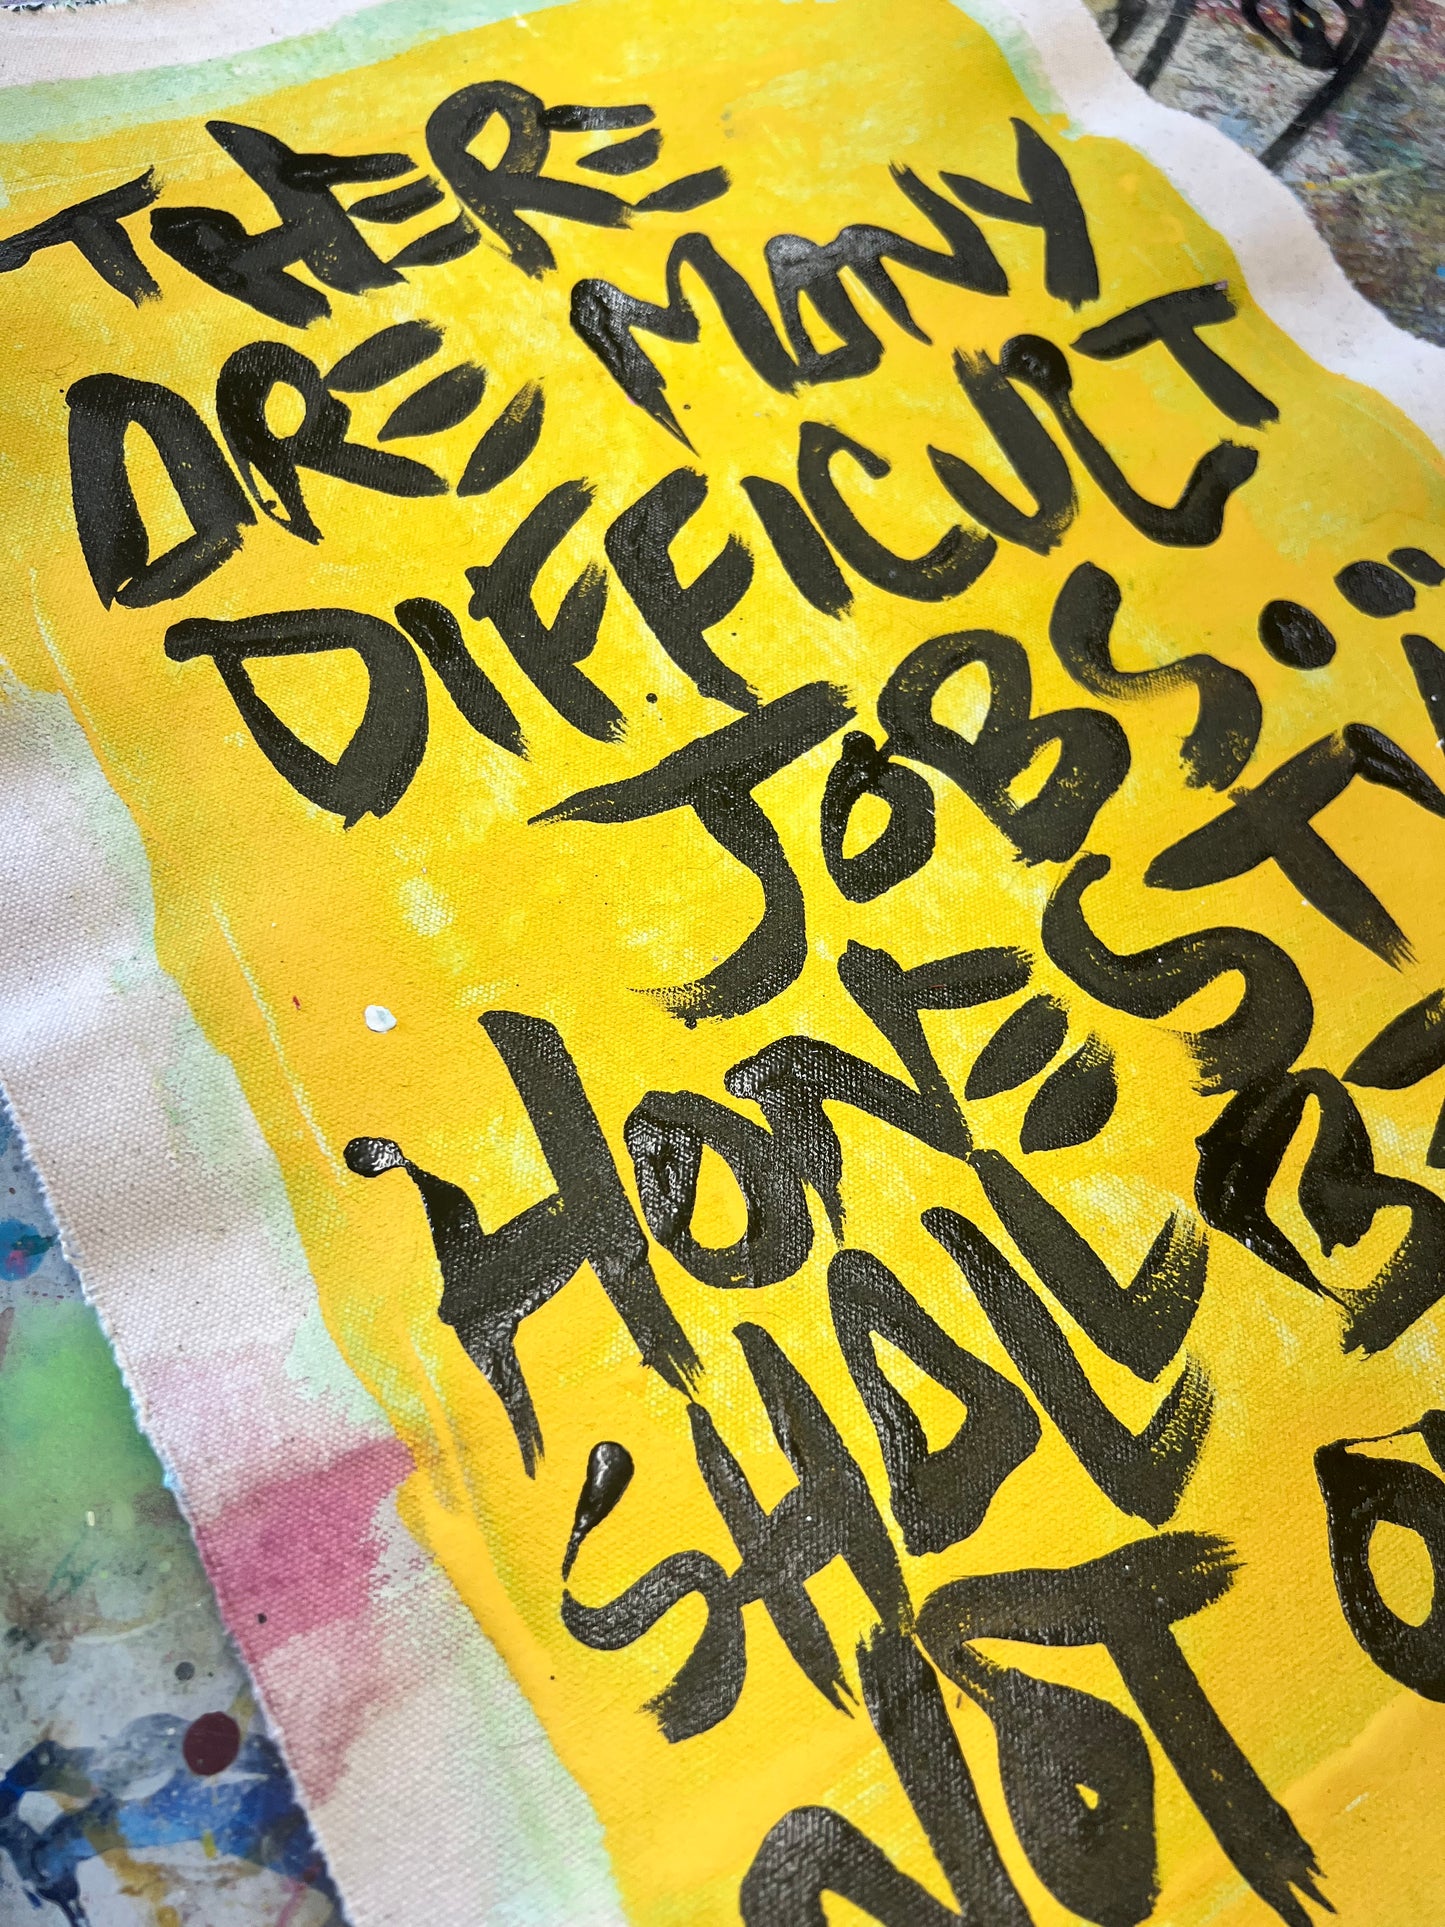 THERE
ARE MANY
DIFFICULT
JOBS:
HONEST
SHALL B
NOT